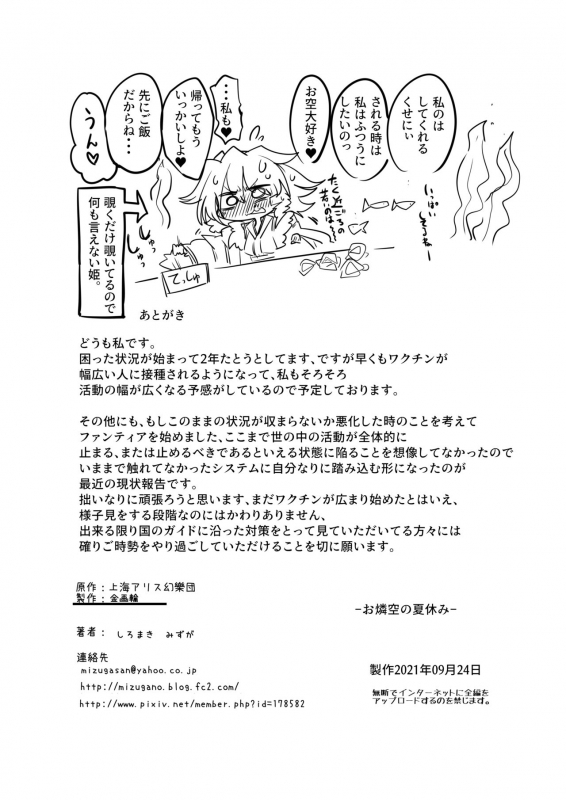 私のは
してくれる
くせにぃ
される時は
私はふつうに
したいのっ
お空大好き♥
…私も♥
帰ってもう
いっかいしよ♥
先にご飯
だからね…
うん♡
いっぱい
してるねー
たく近ごろの
若いのは…
しゅっ
しゅっ
てっしゅ
覗くだけ覗いてるので
何も言えない姫。
あとがき
どうも私です。
困った状況が始まって2年たとうとしてます、ですが早くもワクチンが
幅広い人に接種されるようになって、私もそろそろ
活動の幅が広くなる予感がしているので予定しております。
その他にも、もしこのままの状況が収まらないか悪化した時のことを考えて
ファンティアを始めました、ここまで世の中の活動が全体的に
止まる、または止めるべきであるといえる状態に陥ることを想像してなかったので
いままで触れてなかったシステムに自分なりに踏み込む形になったのが
最近の現状報告です。
拙いなりに頑張ろうと思います、まだワクチンが広まり始めたとはいえ、
様子見をする段階なのにはかわりありません、
出来る限り国のガイドに沿った対策をとって見ていただいてる方々には
確りご時勢をやり過ごしていただけることを切に願います。
原作：上海アリス幻樂団
製作：金画輪
著者： しろまき みずが
連絡先
mizugasan@yahoo.co.jp
http://mizugano.blog.fc2.com/
http://www.pixiv.net/member.php?id=178582
−お燐空の夏休み−
製作2021年09月24日
無断でインターネットに全編を
アップロードするのを禁じます。